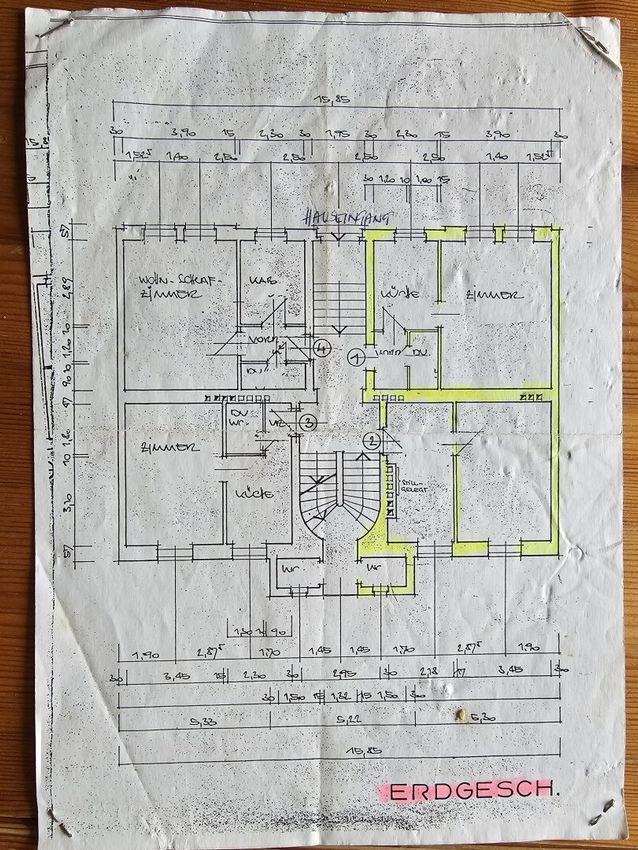 15,85
30 3,90 15 2,30 30 1,95 30 2,30 15 3,90 30
1,52⁵ 1,40 2,50 2,50 2,50 2,50 1,40 1,52⁵
30 1,20 10 1,00 15
HAUSEINGANG
57
2,89
WOHN-SCHLAF-
ZIMMER
KAB.
KÜCHE
ZIMMER
20
1,20
VORR.
4
1
VORR.
DU.
10
90
DU
47
DU
WC.
VR.
3
2
ZIMMER
1,80
10
KÜCHE
STILL-
GELEGT
3,10
57
WC.
WC
1,30 90
1,90 2,87⁵ 1,70 1,45 1,45 1,70 2,87⁵ 1,90
30 3,45 15 2,30 30 2,95 30 2,18 17 3,45 30
30 1,50 15 1,32 15 1,50 30
5,33 5,22 5,30
15,85
ERDGESCH.